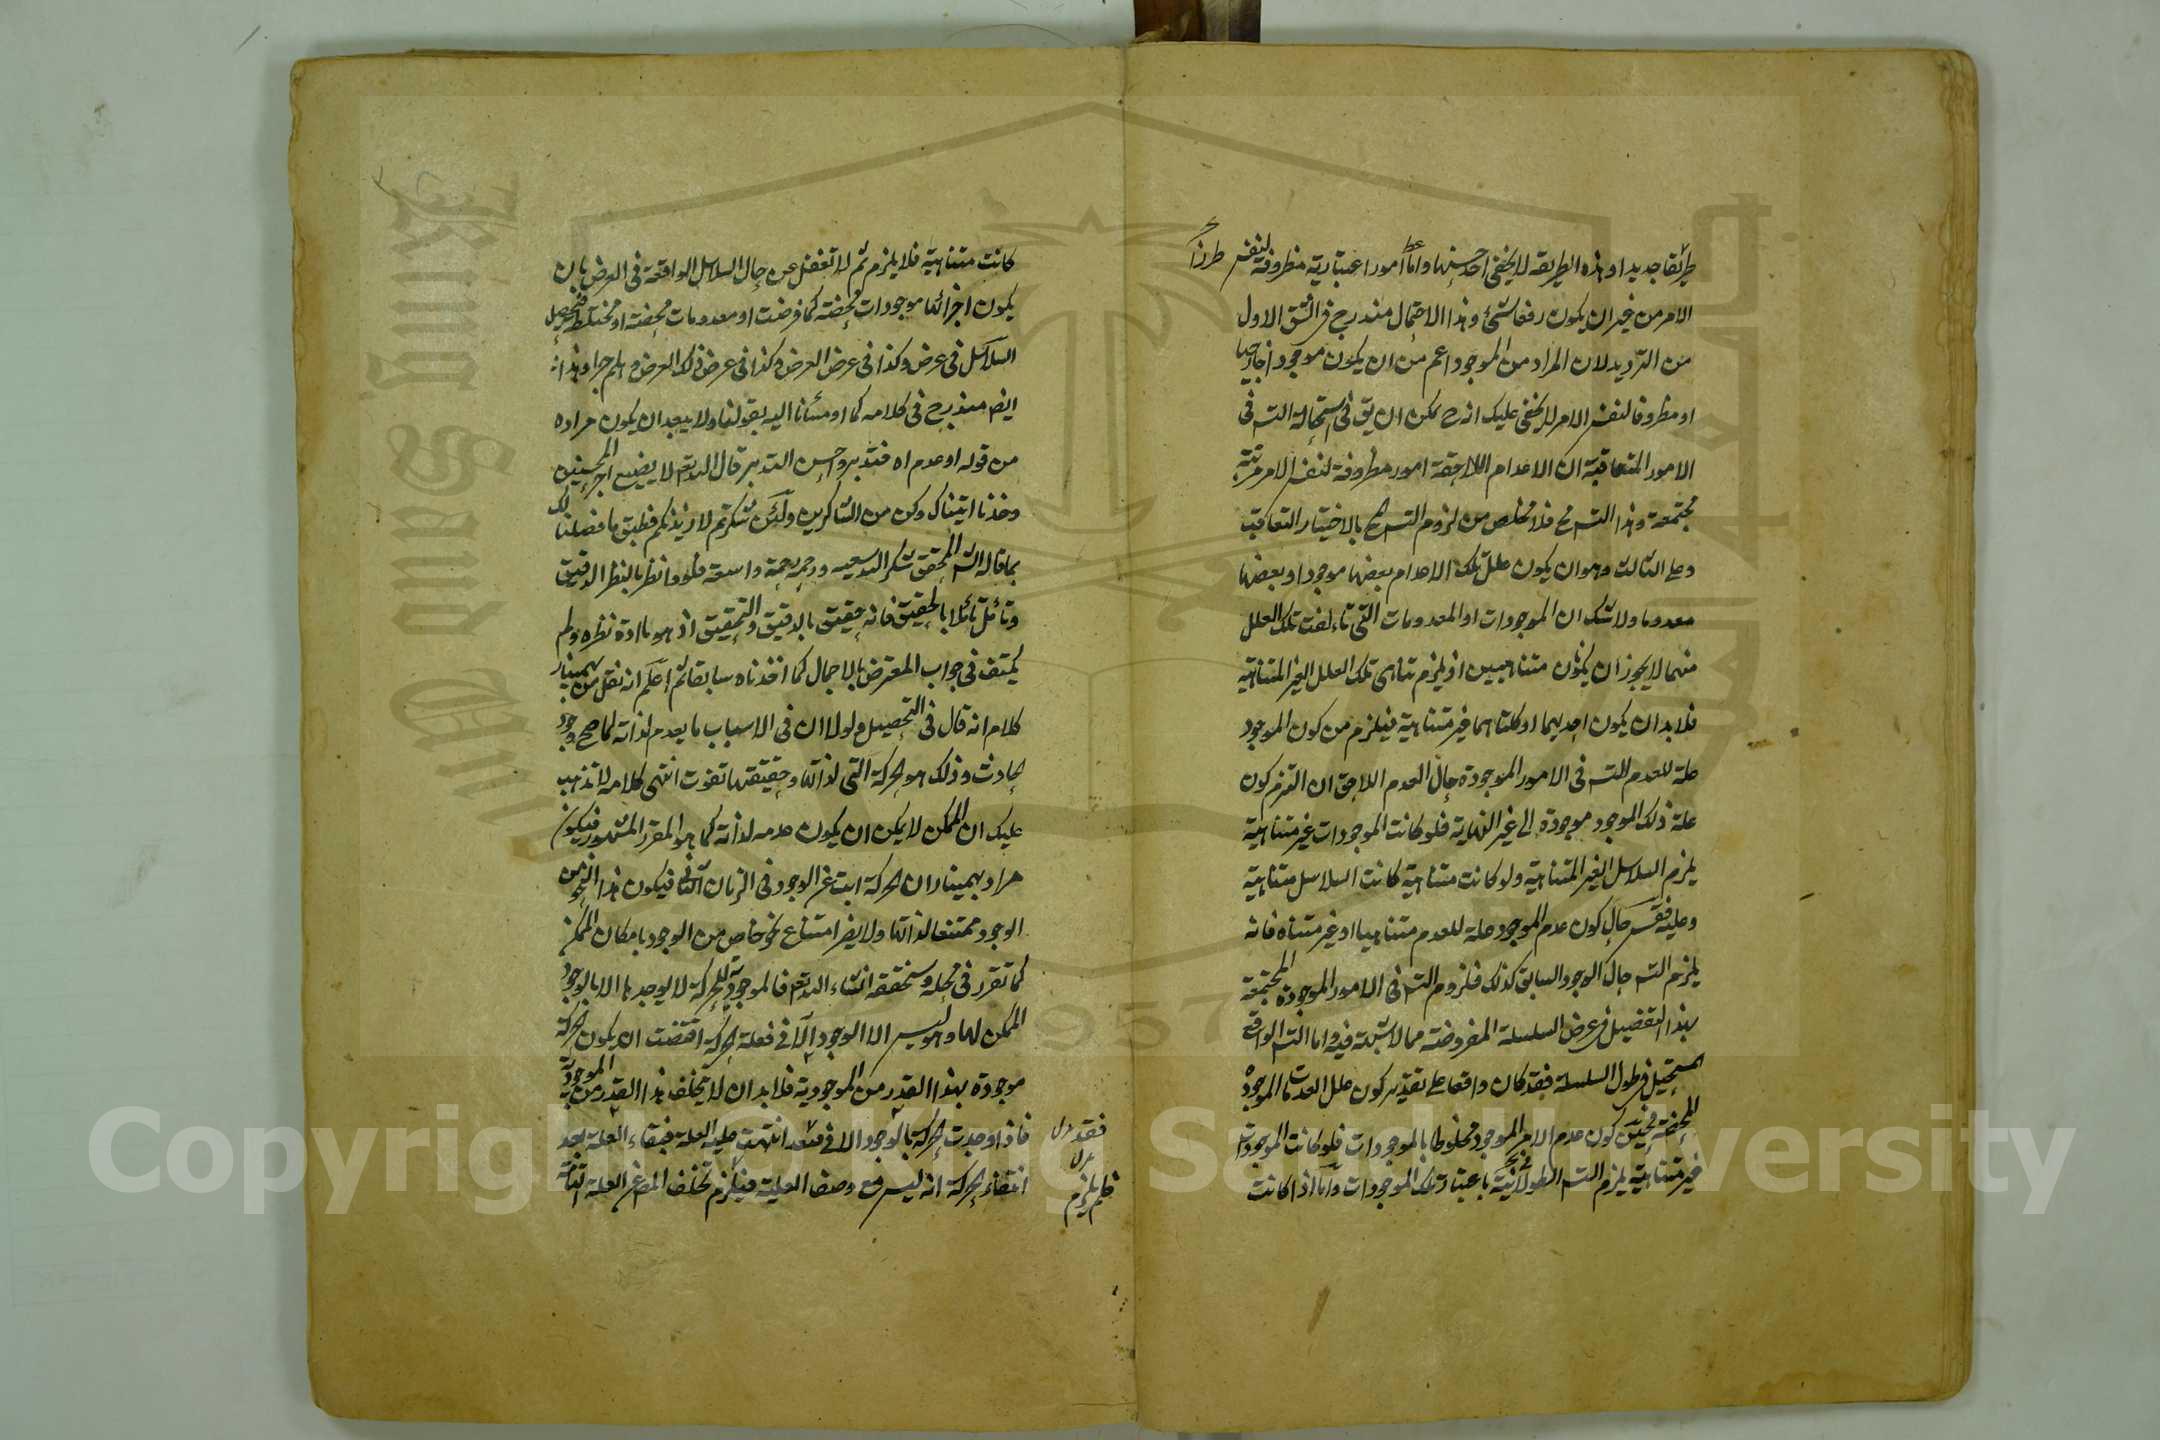 طريقا جديدا وهذه الطريقة لا يخفى احسنها واما امورا اعتبارية مظروفة لنفس
طرزا
الامر من غير ان يكون رفعا لشئ وهذا الاحتمال مندرج في الشق الاول
من الترديد لان المراد من الموجود اعم من ان يكون موجودا خارجيا
او مظروفا لنفس الامر لا يخفى عليك انه ح يمكن ان يق في استحالة التس في
الامور المتعاقبة ان الاعدام اللاحقة امور مظروفة لنفس الامر مرتبة
مجتمعة وهذا التس مح فلا مخلص من لزوم التس المح بالاختيار التعاقب
وعلى الثالث وهو ان يكون علل تلك الاعدام بعضها موجودا وبعضها
معدوما ولا شك ان الموجودات او المعدومات التي تالفت تلك العلل
منهما لا يجوز ان يكون متناهيين اذ يلزم تناهى تلك العلل الغير المتناهية
فلا بد ان يكون احديهما او كلتاهما غير متناهية فيلزم من كون الموجود
علة للعدم التس في الامور الموجودة حال العدم اللاحق ان التزم كون
علة ذلك الموجود موجودة الى غير النهاية فلو كانت الموجودات غير متناهية
يلزم السلاسل الغير المتناهية ولو كانت متناهية كانت السلاسل متناهية
وعليه فقس حال كون عدم الموجود علة للعدم متناهيا او غير متناه فانه
يلزم التس حال الوجود السابق كذلك فلزوم التس في الامور الموجودة المجتمعة
بهذا التفصيل في عرض السلسلة المفروضة مما لا شبهة فيه واما التس الواقع
المستحيل في طول السلسلة فقد كان واقعا على تقدير كون علل العدمات الموجودة
المحضة فحينئذ كون عدم الامر الموجود مخلوطا بالموجودات فلو كانت الموجودات
غير متناهية يلزم التس الطولانية باعتبار تلك الموجودات واما اذا كانت
كانت متناهية فلا يلزم ثم لا تغفل عن حال السلاسل الواقعة في العرض بان
يكون اجزائها موجودات محضة كما فرضت او معدومات محضة او مختلطة فيحصل
السلاسل في عرض وكذا في عرض العرض وكذا في عرض ذلك العرض وهلم جرا وهذا
ايضا مندرج في كلامه كما اومأنا اليه بقولنا ولا يبعد ان يكون مراده
من قوله او عدم اه فتدبر واحسن التدبر قال الله تع لا يضيع اجر المحسنين
وخذ ما اتيناك وكن من الشاكرين ولئن شكرتم لازيدنكم فطبق ما فصلنا لك
بما قاله الش المحقق شكر الله سعيه ورحمه رحمة واسعة فلو وانظر بالنظر الدقيق
وتامل تاملا بالحقيق فانه حقيق بالدقيق والتحقيق اذ هو ما ادة نظره ولم
يكتف في جواب المعترض بالاجمال كما اخذناه سابقا ثم اعلم انه نقل من بهمنيار
كلام انه قال في التحصيل ولولا ان في الاسباب ما يعدم لذاته لما صح وجود
الحادث وذلك هو الحركة التي لذاتها وحقيقتها تفوت انتهى كلامه لا تذهب
عليك ان الممكن لا يمكن ان يكون عدمه لذاته كما هو المقرر المشهور فيكون
مراد بهمنيار ان الحركة ابت عن الوجود في الزمان الثاني فيكون هذا النحو من
الوجود ممتنعا لذاتها ولا يضر امتناع نحو خاص من الوجود بامكان الممكن
كما تقرر في محله وستحققه انشاء الله تع فالموجودية للحركة لا يوجد ها الا بالوجود
الممكن لها وهو ليس الا الوجود الآني فعلة الحركة اقتضت ان يكون الحركة
موجودة بهذا القدر من الموجودية فلا بد ان لا يتخلف هذا القدر من الموجودية
فاذا وجدت الحركة بالوجود الآني فقد انتهت علية العلة فبقاء العلة بعد
انتفاء الحركة انه ليس مع وصف العلية فيلزم تخلف المع عن العلة التامة
فقد
فلم يلزم